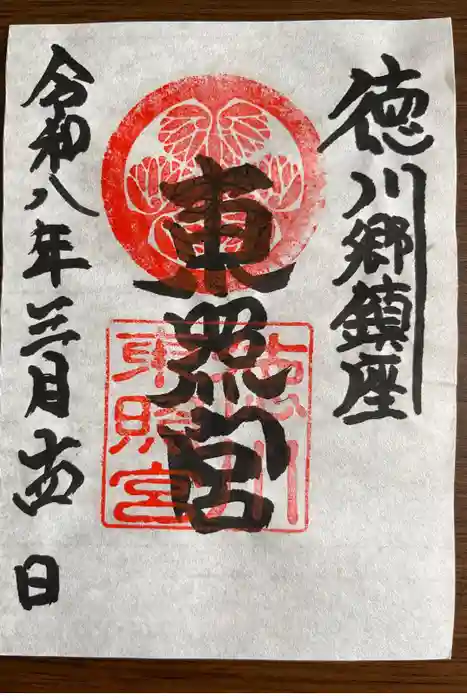 徳川郷鎮座
東照宮
徳川
東照宮
令和八年三月廿四日